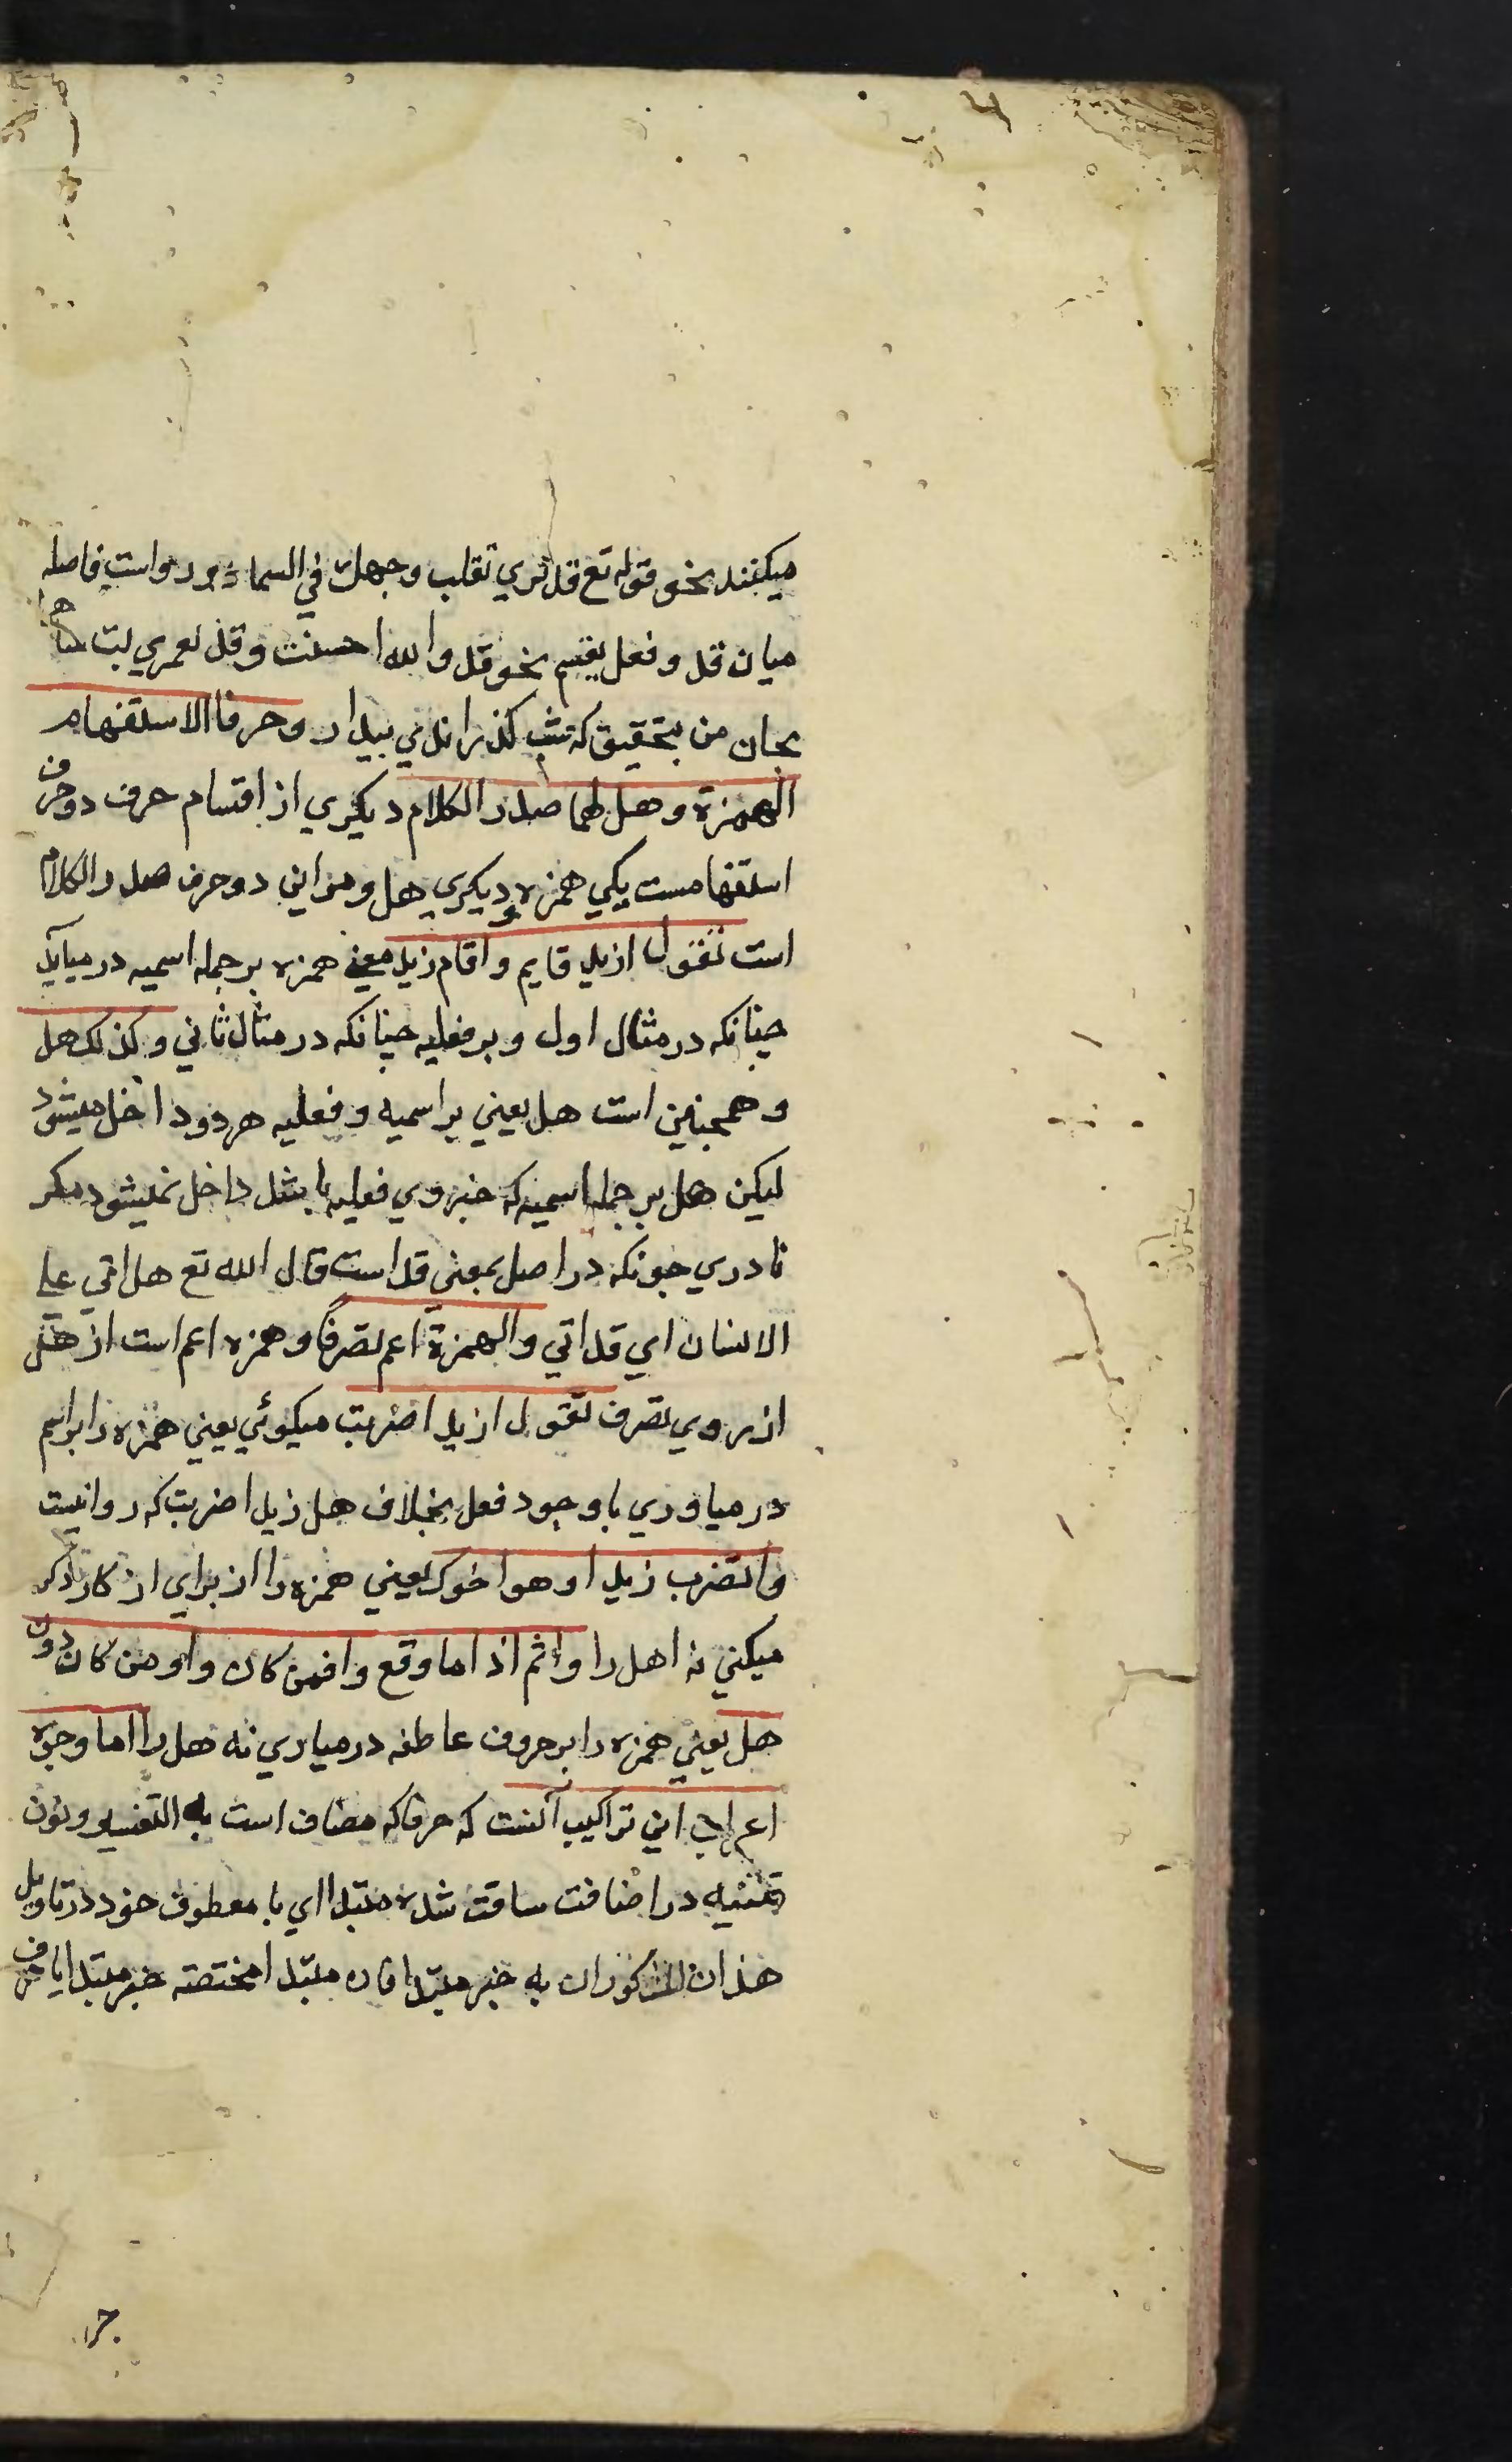 میکنند نحو قوله تع قد نری تقلب وجهک في السماء و رواست فاصله
میان قد و فعل بقسم نحو قد والله احسنت و قد لعمري بت
بجان من بتحقیق که شب کذرانیدم بیدار و حرفا الاستفهام
الهمزة و هل لهما صدر الکلام دیکري از اقسام حرف دو حرف
استفهامست یکي همزه و دیکري هل و مر این دو حرف صدر الکلام
است تقول ازید قایم و اقام زید یعني همزه بر جمله اسمیه درمیاید
چنانکه در مثال اول و بر فعلیه چنانکه در مثال ثاني و کذلک هل
و همچنین است هل یعني بر اسمیه و فعلیه هر دو داخل میشود
لیکن هل بر جمله اسمیه که خبر وي فعلیه باشد داخل نمیشود مکر
نادري چونکه در اصل بمعنی قد است قال الله تع هل اتي علي
الانسان اي قد اتي والهمزة اعم تصرفا و همزه اعم است از هل
از روي تصرف تقول ازیدا ضربت میکوئي یعني همزه را بر اسم
درمیاوري با وجود فعل بخلاف هل زیدا ضربت که روا نیست
واتضرب زیدا و هو اخوک یعني همزه را از براي انکار ذکر
میکني نه اهل را واثم اذا ما وقع وافمن کان واومن کان دون
هل یعني همزه را بر حروف عاطفه درمیاري نه هل را اما وجوه
اعراب این تراکیب آنست که حرفا که مضاف است به التفسیر و نون
تثنیه در اضافت ساقت شده مبتدا اي با معطوف خود در تاویل
هذان المذکوران به خبر مبتدا فان مبتدا مختصته خبر مبتدا یا حرف